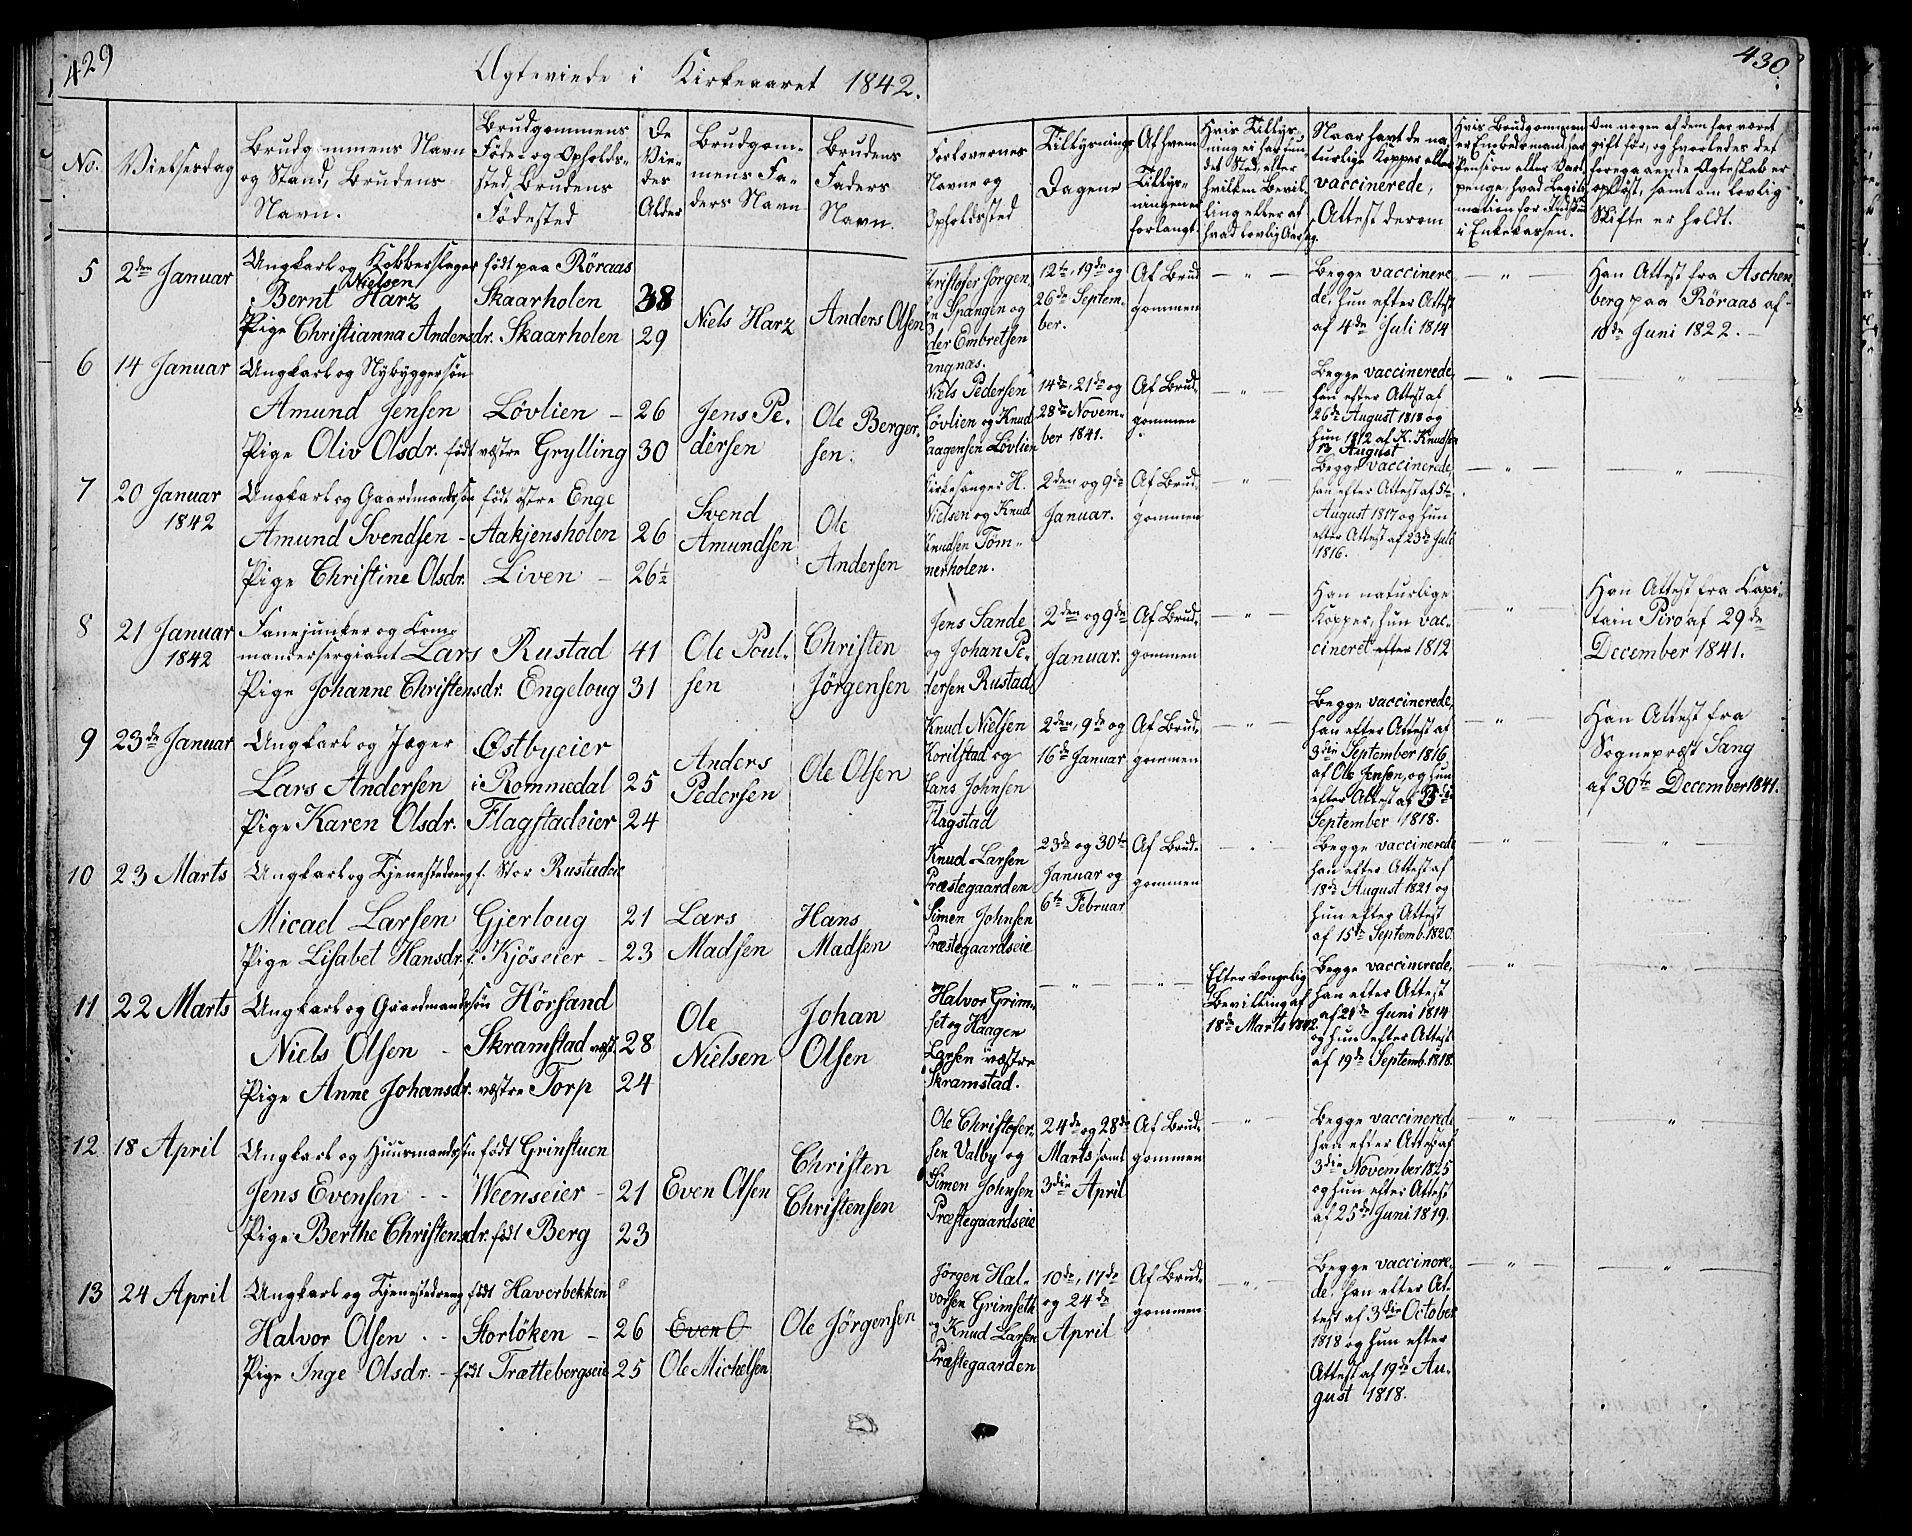 429
Ægteviede i Kirkeaaret 1842.
430
No.
Vielsesdag
Brudgommens Navn
og Stand, Brudens
Navn.
Brudgommens
Føde- og Opholds-
sted, Brudens
Fødested
De
Vie-
des
Alder
Brudgom-
mens Fa-
ders Navn
Brudens
Faders
Navn.
Forlovernes
Navne og
Opholdssted
Tillysnings
Dagene
Af hvem
Tillys-
ningen er
forlangt.
Hvis Tillys-
ning ei har fun-
det Sted, efter
hvilken Bevil-
ling eller af
hvad lovlig Aarsag.
Naar havt de na-
turlige Kopper eller
vaccinerede,
Attest derom
Hvis Brudgommen
er Embedsmand, har
Pension eller Vart-
penge, hvad Legiti-
mation for Indskud
i Enkekassen.
Om nogen af dem har været
gift før, og hvorledes det
foregaaende Ægteskab er
opløst, samt om lovlig
Skifte er holdt.
5
2den Januar
Ungkarl og Kobberslager
Nielsen
Bernt Harz
Pige Christianna Andersdr.
født paa Röraas
Skaarholen
Skaarholen
38
29
Niels Harz
Anders Olsen
Kristofer Jørgen-
sen Spangen og
Peder Embretsen
Tangnæs.
12te, 19de og
26de Septem-
ber.
Af Brud
gommen
— " —
Begge vaccinere-
de, hun efter Attest
af 4de Juli 1814
— " —
Han Attest fra Aschen
berg paa Röraas af
10de Juni 1822. —
6
14 Januar
Ungkarl og Nybyggersøn
Amund Jensen
Pige Oliv Olsdr. født
Løvlien —
vestre Grylling
26
30
Jens Pe-
dersen
Ole Berger-
sen.
Niels Pedersen
Løvlien og Knud
Haagensen Løvlien
14de, 21de og
28de Novem-
ber 1841.
Af Brud-
gommen
— " —
Begge vaccinerede,
han efter Attest af
26de August 1818 og
hun 1812 af K. Knudsen
12 August
— " —
— " —
7
20 Januar
1842
Ungkarl og Gaardmandssøn
Amund Svendsen -
Pige Christine Olsdr.
født østre Enge
Aakjensholen
Liven —
26
26½
Svend
Amundsen
Ole
Andersen
Kirkesanger H.
Nielsen og Knud
Knudsen Töm-
merholen.
2den og 9de
Januar.
Af Brud-
gommen
— " —
Begge vaccinerede
han efter Attest af 5te
August 1817 og hun
efter Attest af 23de Juli
1816.
— " —
— " —
8
21 Januar
1842
Fanejunker og Com-
mandersergiant Lars
Pige Johanne Christensdr.
Rustad
Engeloug
41
31
Ole Poul-
sen
Christen
Jörgensen
Jens Sande
og Johan Pe-
dersen Rustad
2den og 9de
Januar.
Af Brud-
gommen
— " —
Han naturlige
Kopper, hun vac-
cineret efter 1812
— " —
Han Attest fra Capi-
tain Piro af 29de
December 1841.
9
23de Januar
Ungkarl og Jæger
Lars Andersen
Pige Karen Olsdr.
Østbyeier
i Rommedal
Flagstadeier
25
24
Anders
Pedersen
Ole Olsen
Knud Nielsen
Korilstad og
Hans Johnsen
Flagstad
2den, 9de og
16de Januar
Af Brud-
gommen
— " —
Begge vaccinerede,
han efter Attest af
3die September 1816
af Ole Jensen, og hun
efter Attest af
September 1818.
— " —
Han Attest fra
Sognepræst Sang
af 30te December 1841.
10
23 Marts
Ungkarl og Tjenestedreng
Micael Larsen
Pige Lisabet Hansdr. f.
f. Stor Rustadeie
Gjerloug
Kjöseier -
21
23
Lars
Madsen
Hans
Madsen
Knud Larsen
Præstegaarden
Simen Johnsen
Præstegaardseie
23de og 30te
Januar og
6te Februar
Af Brud-
gommen
— " —
Begge vaccinerede
han efter Attest af
18de August 1821 og
hun efter Attest
af 15de Septemb. 1820.
— " —
— " —
11
22 Marts
Ungkarl og Gaardmandssøn
Niels Olsen -
Pige Anne Johansdr.
Hörsand
Skramstad vest.
vestre Torp
28
24
Ole
Nielsen
Johan
Olsen
Halvor Grim-
set og Haagen
Larsen vestre
Skramstad.
— " —
— " —
Efter kongelig
Bevilling af
18de Marts 1842.
Begge vaccinerede,
han efter Attest
af 21de Juni 1814
og hun efter Attest
af 19de Septemb. 1818.
— " —
"
12
18 April
Ungkarl og Huusmandssøn
Jens Evensen - -
Pige Berthe Christensdr.
født Grinstuen
Weenseier -
født Berg
21
23
Even Olsen
Christen
Christensen
Ole Christofer-
sen Valby og
Simen Johnsen
Præstegaardseie
24de og 28de
Marts samt
3die April
Af Brud-
gommen
— " —
Begge vaccinerede
han efter Attest af
3die November 1825
og hun efter Attest
af 25de Juni 1819.
— " —
"
13
24 April
Ungkarl og Tjenestedreng
Halvor Olsen - -
Pige Inge Olsdr. -
født Haverbekken
Storlöken -
født Trættebergseie
26
25
Even O
Ole Michelsen
Ole Jörgensen
Jörgen Hal-
vorsen Grimseth
og Knud Larsen
Præstegaarden
10de, 17de
og 24de
April
Af Brud-
gommen
— " —
Begge vaccinere-
de, han efter At-
test af 3die October
1818 og hun efter
Attest af 19de Au-
gust 1818.
— " —
"